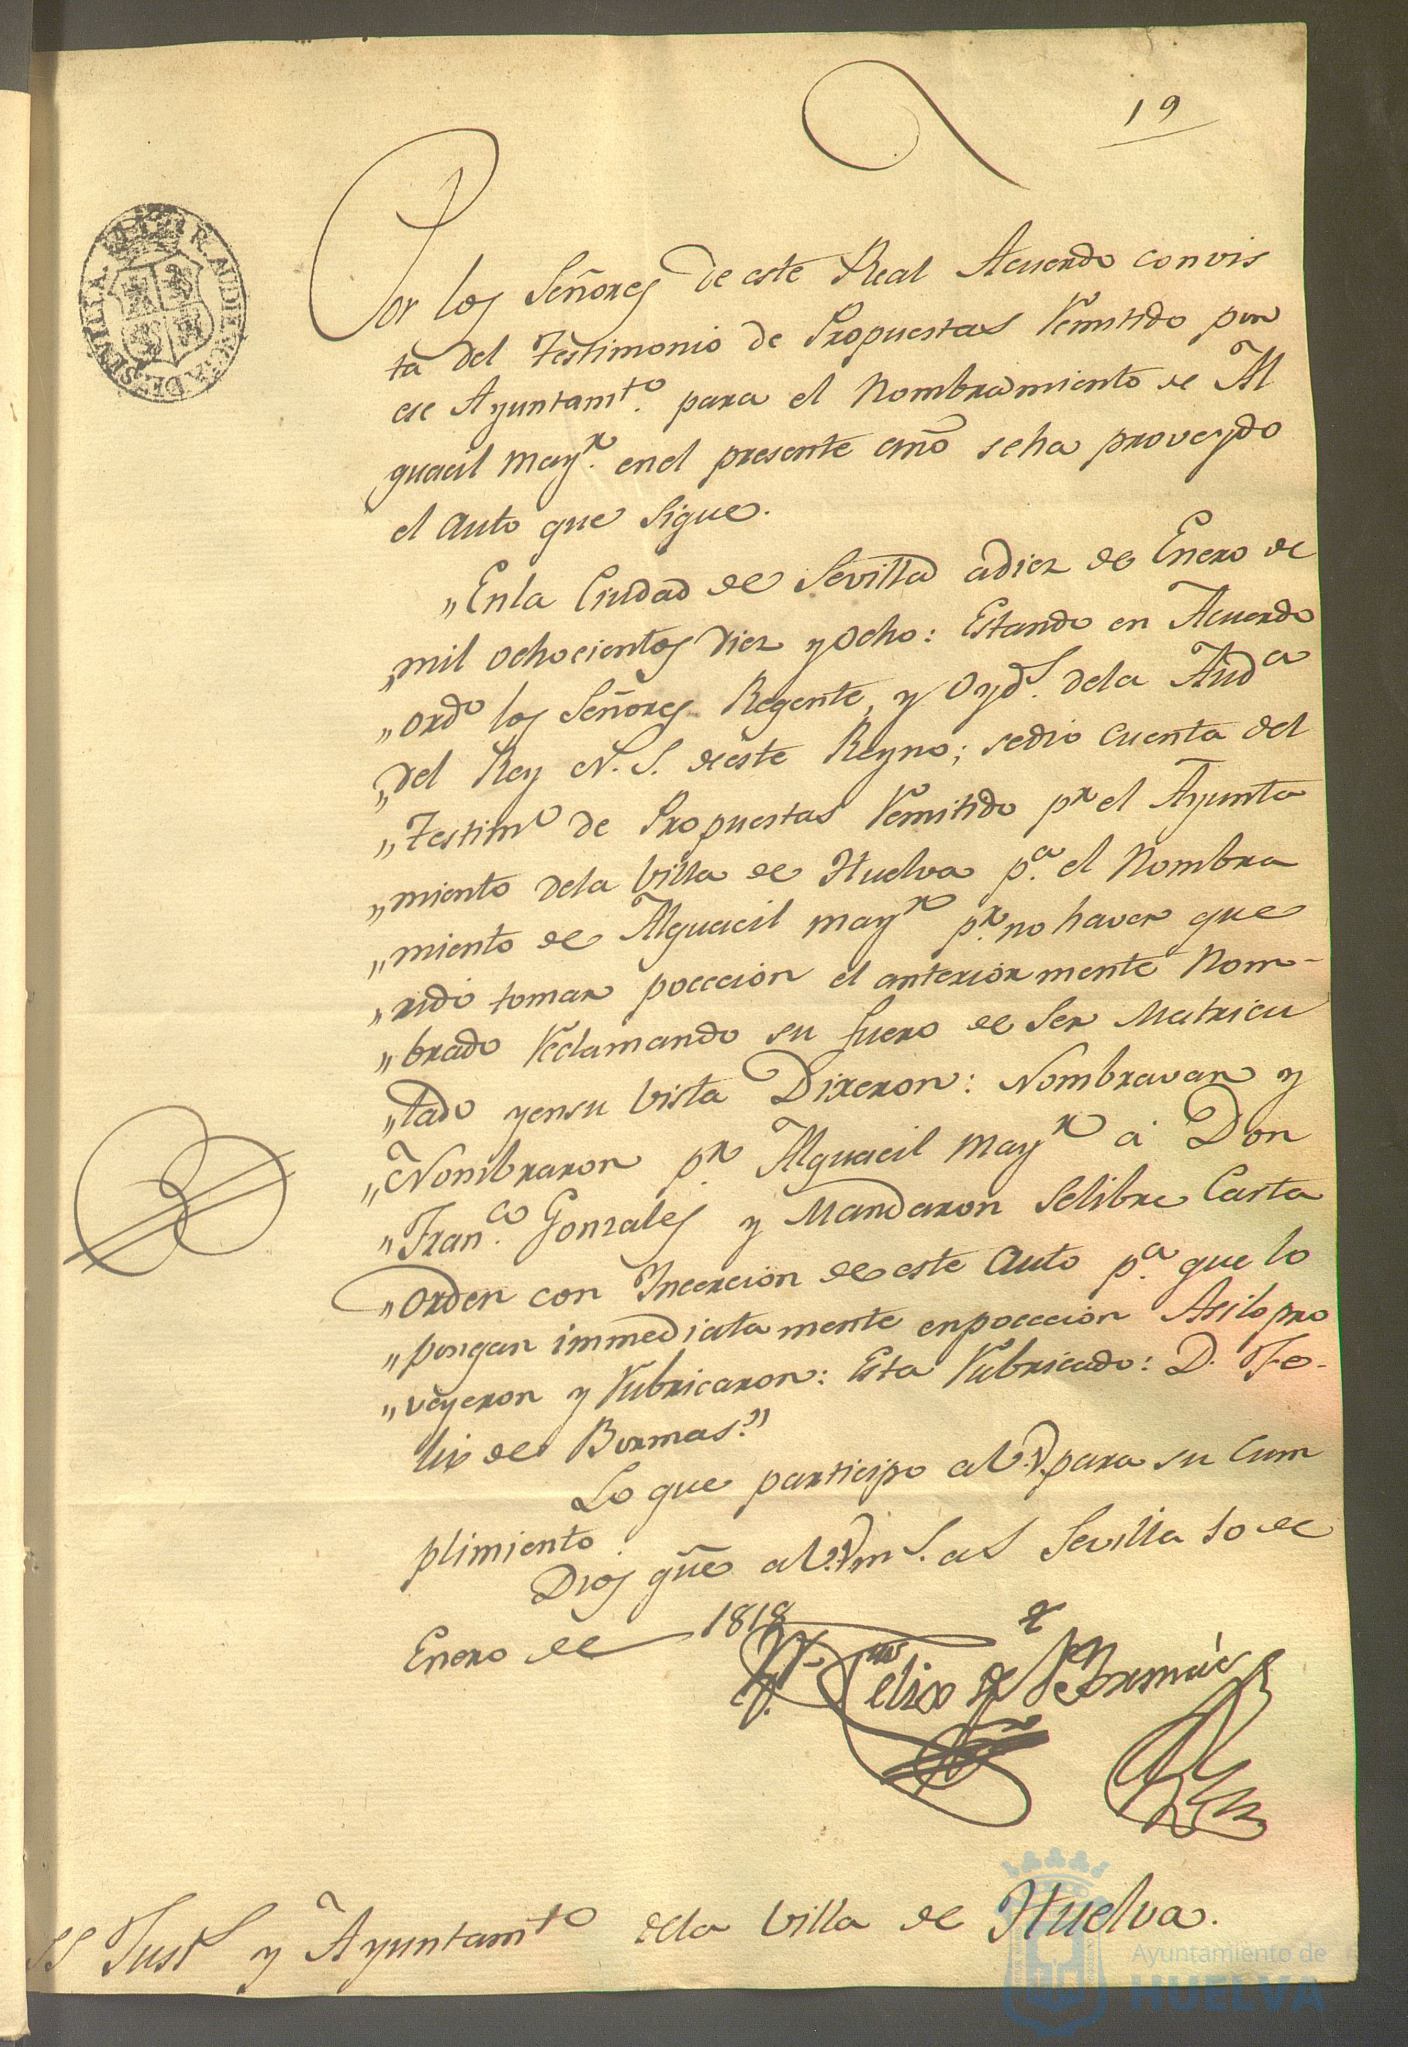 19
R. AUDIENCIA DE SEVILLA
Por los Señores de este Real Acuerdo con vis
ta del Testimonio de Propuestas Remitido por
ese Ayuntamto. para el Nombramiento de Al
guacil mayr. en el presente año se ha proveydo
el auto que sigue.
"En la Ciudad de Sevilla a diez de Enero de
"mil ochocientos diez y ocho: Estando en Acuerdo
"ordo los Señores Regente, y Oyds. de la Auda
"del Rey N. S. de este Reyno; se dio cuenta del
"Testimo de Propuestas Remitido pr el Ayunta
"miento de la Villa de Huelva pa. el Nombra
"miento de Alguacil mayr pr. no haver que
"rido tomar poccecion el anteriormente Nom-
"brado Reclamando su fuero de ser Matricu
"lado y en su Vista Dixeron: Nombravan y
"Nombraron pr Alguacil mayr a Don
"Franco. Gonzales y Mandaron se libre Carta
"Orden con Incercion de este auto pa. que lo
"pongan immediatamente en poccecion Asi lo pro
"veyeron y Rubricaron: Esta Rubricado: D. Fe-
lix de Bormas."
Lo que participo a V.V. para su Cum
plimiento.
Dios gũe a V.V. ms. as Sevilla 10 de
Enero de 1818
Felix de Bormás
SS Justa y Ayuntamto de la Villa de Huelva.
Ayuntamiento de
HUELVA